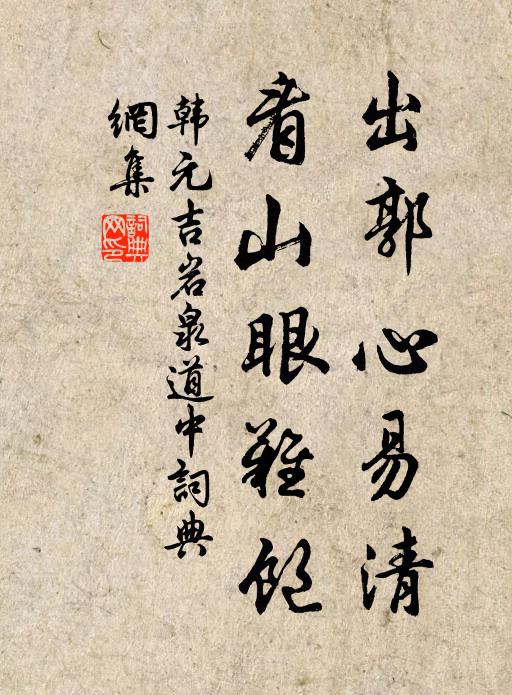 出郭心易清
看山眼難飽
韩元吉岩泉道中詞典
網集
詞典
网印